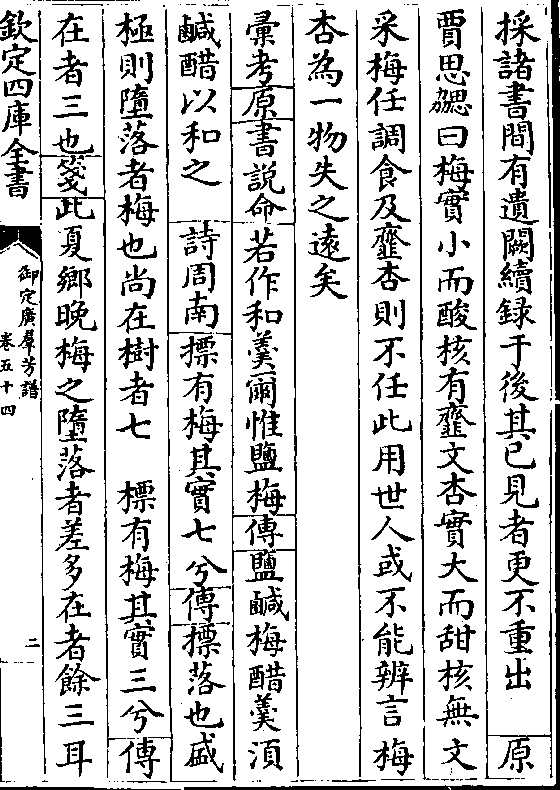 採諸書間有遺闕續録于後其已見者更不重出　原
賈思勰曰梅實小而酸核有𪗋文杏實大而甜核無文
采梅任調食及虀杏則不任此用世人或不能辨言梅
杏為一物失之遠矣
彙考原書説命若作和羹爾惟鹽梅傳鹽鹹梅醋羹須
鹹醋以和之　詩周南摽有梅其實七兮傳摽落也盛
極則墮落者梅也尚在樹者七　摽有梅其實三兮傳
在者三也箋此夏鄉晚梅之墮落者差多在者餘三耳
欽定四庫全書
御定廣羣芳譜
卷五十四
二